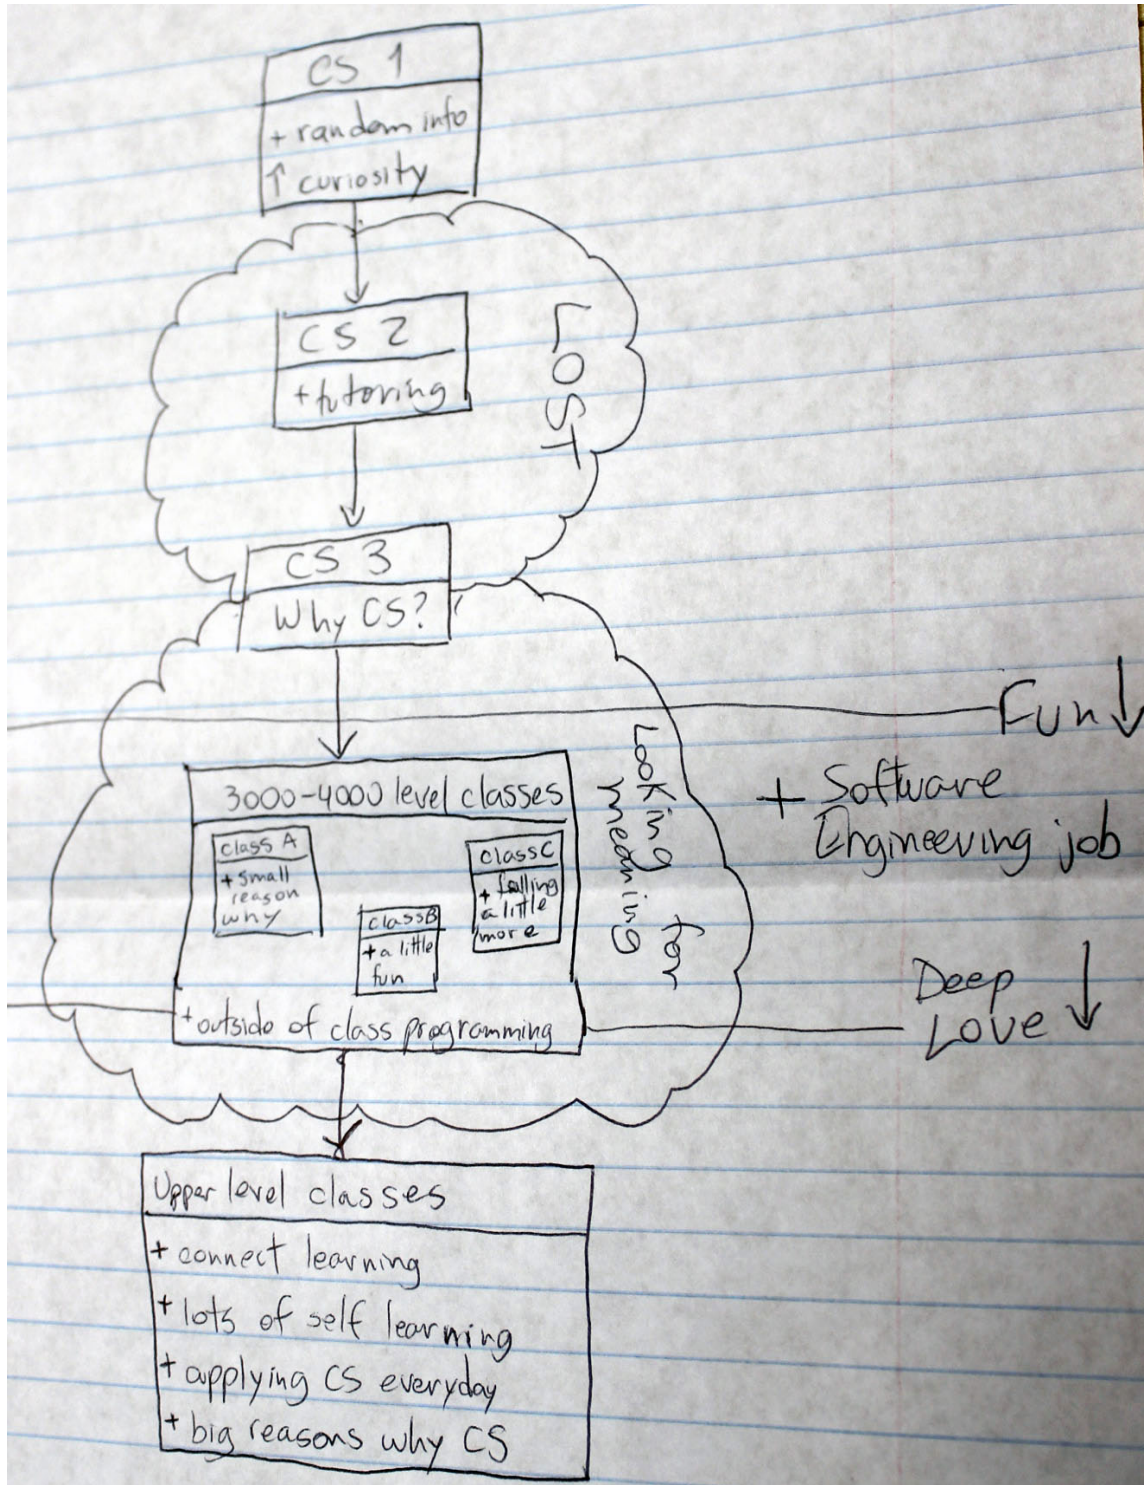 CS 1
+ random info
↑ curiosity
CS 2
+ tutoring
LOST
CS 3
Why CS?
Fun ↓
+ Software
Engineering job
3000-4000 level classes
class A
+ small
reason
why
class B
+ a little
fun
class C
+ falling
a little
more
Looking for
meaning
+ outside of class programming
Deep
Love ↓
Upper level classes
+ connect learning
+ lots of self learning
+ applying CS everyday
+ big reasons why CS